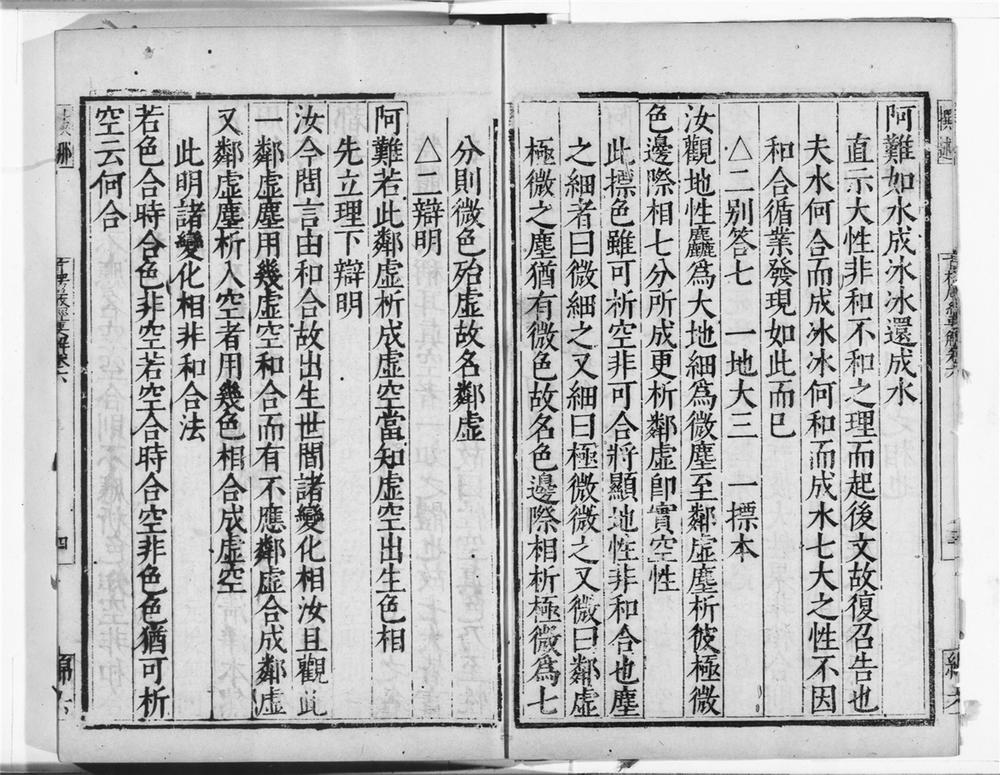 阿難如水成冰冰還成水
直示大性非和不和之理而起後文故復召告也
夫水何合而成冰冰何和而成水七大之性不因
和合循業發現如此而已
△二別答七 一地大三 一標本
汝觀地性麤爲大地細爲微塵至鄰虛塵析彼極微
色邊際相七分所成更析鄰虛卽實空性
此標色雖可析空非可合將顯地性非和合也塵
之細者曰微細之又細曰極微微之又微曰鄰虛
極微之塵猶有微色故名色邊際相析極微爲七
分則微色殆虛故名鄰虛
△二辯明
阿難若此鄰虛析成虛空當知虛空出生色相
先立理下辯明
汝今問言由和合故出生世間諸變化相汝且觀此
一鄰虛塵用幾虛空和合而有不應鄰虛合成鄰虛
又鄰虛塵析入空者用幾色相合成虛空
此明諸變化相非和合法
若色合時合色非空若空合時合空非色色猶可析
空云何合